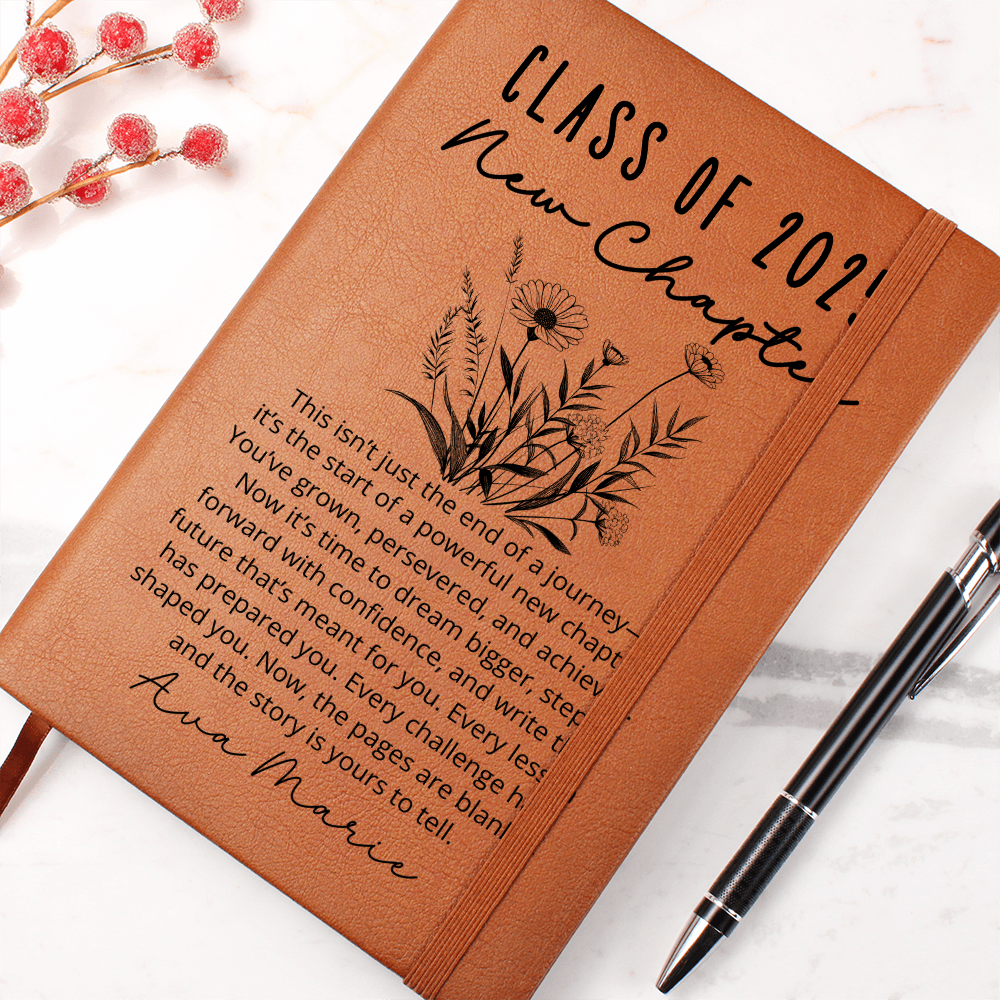 CLASS OF 202
New Chapte
This isn't just the end of a journey—
it's the start of a powerful new chapt
You've grown, persevered, and achiev
Now it's time to dream bigger, step
forward with confidence, and write t
future that's meant for you. Every less
has prepared you. Every challenge h
shaped you. Now, the pages are blan
and the story is yours to tell.
Ava Marie